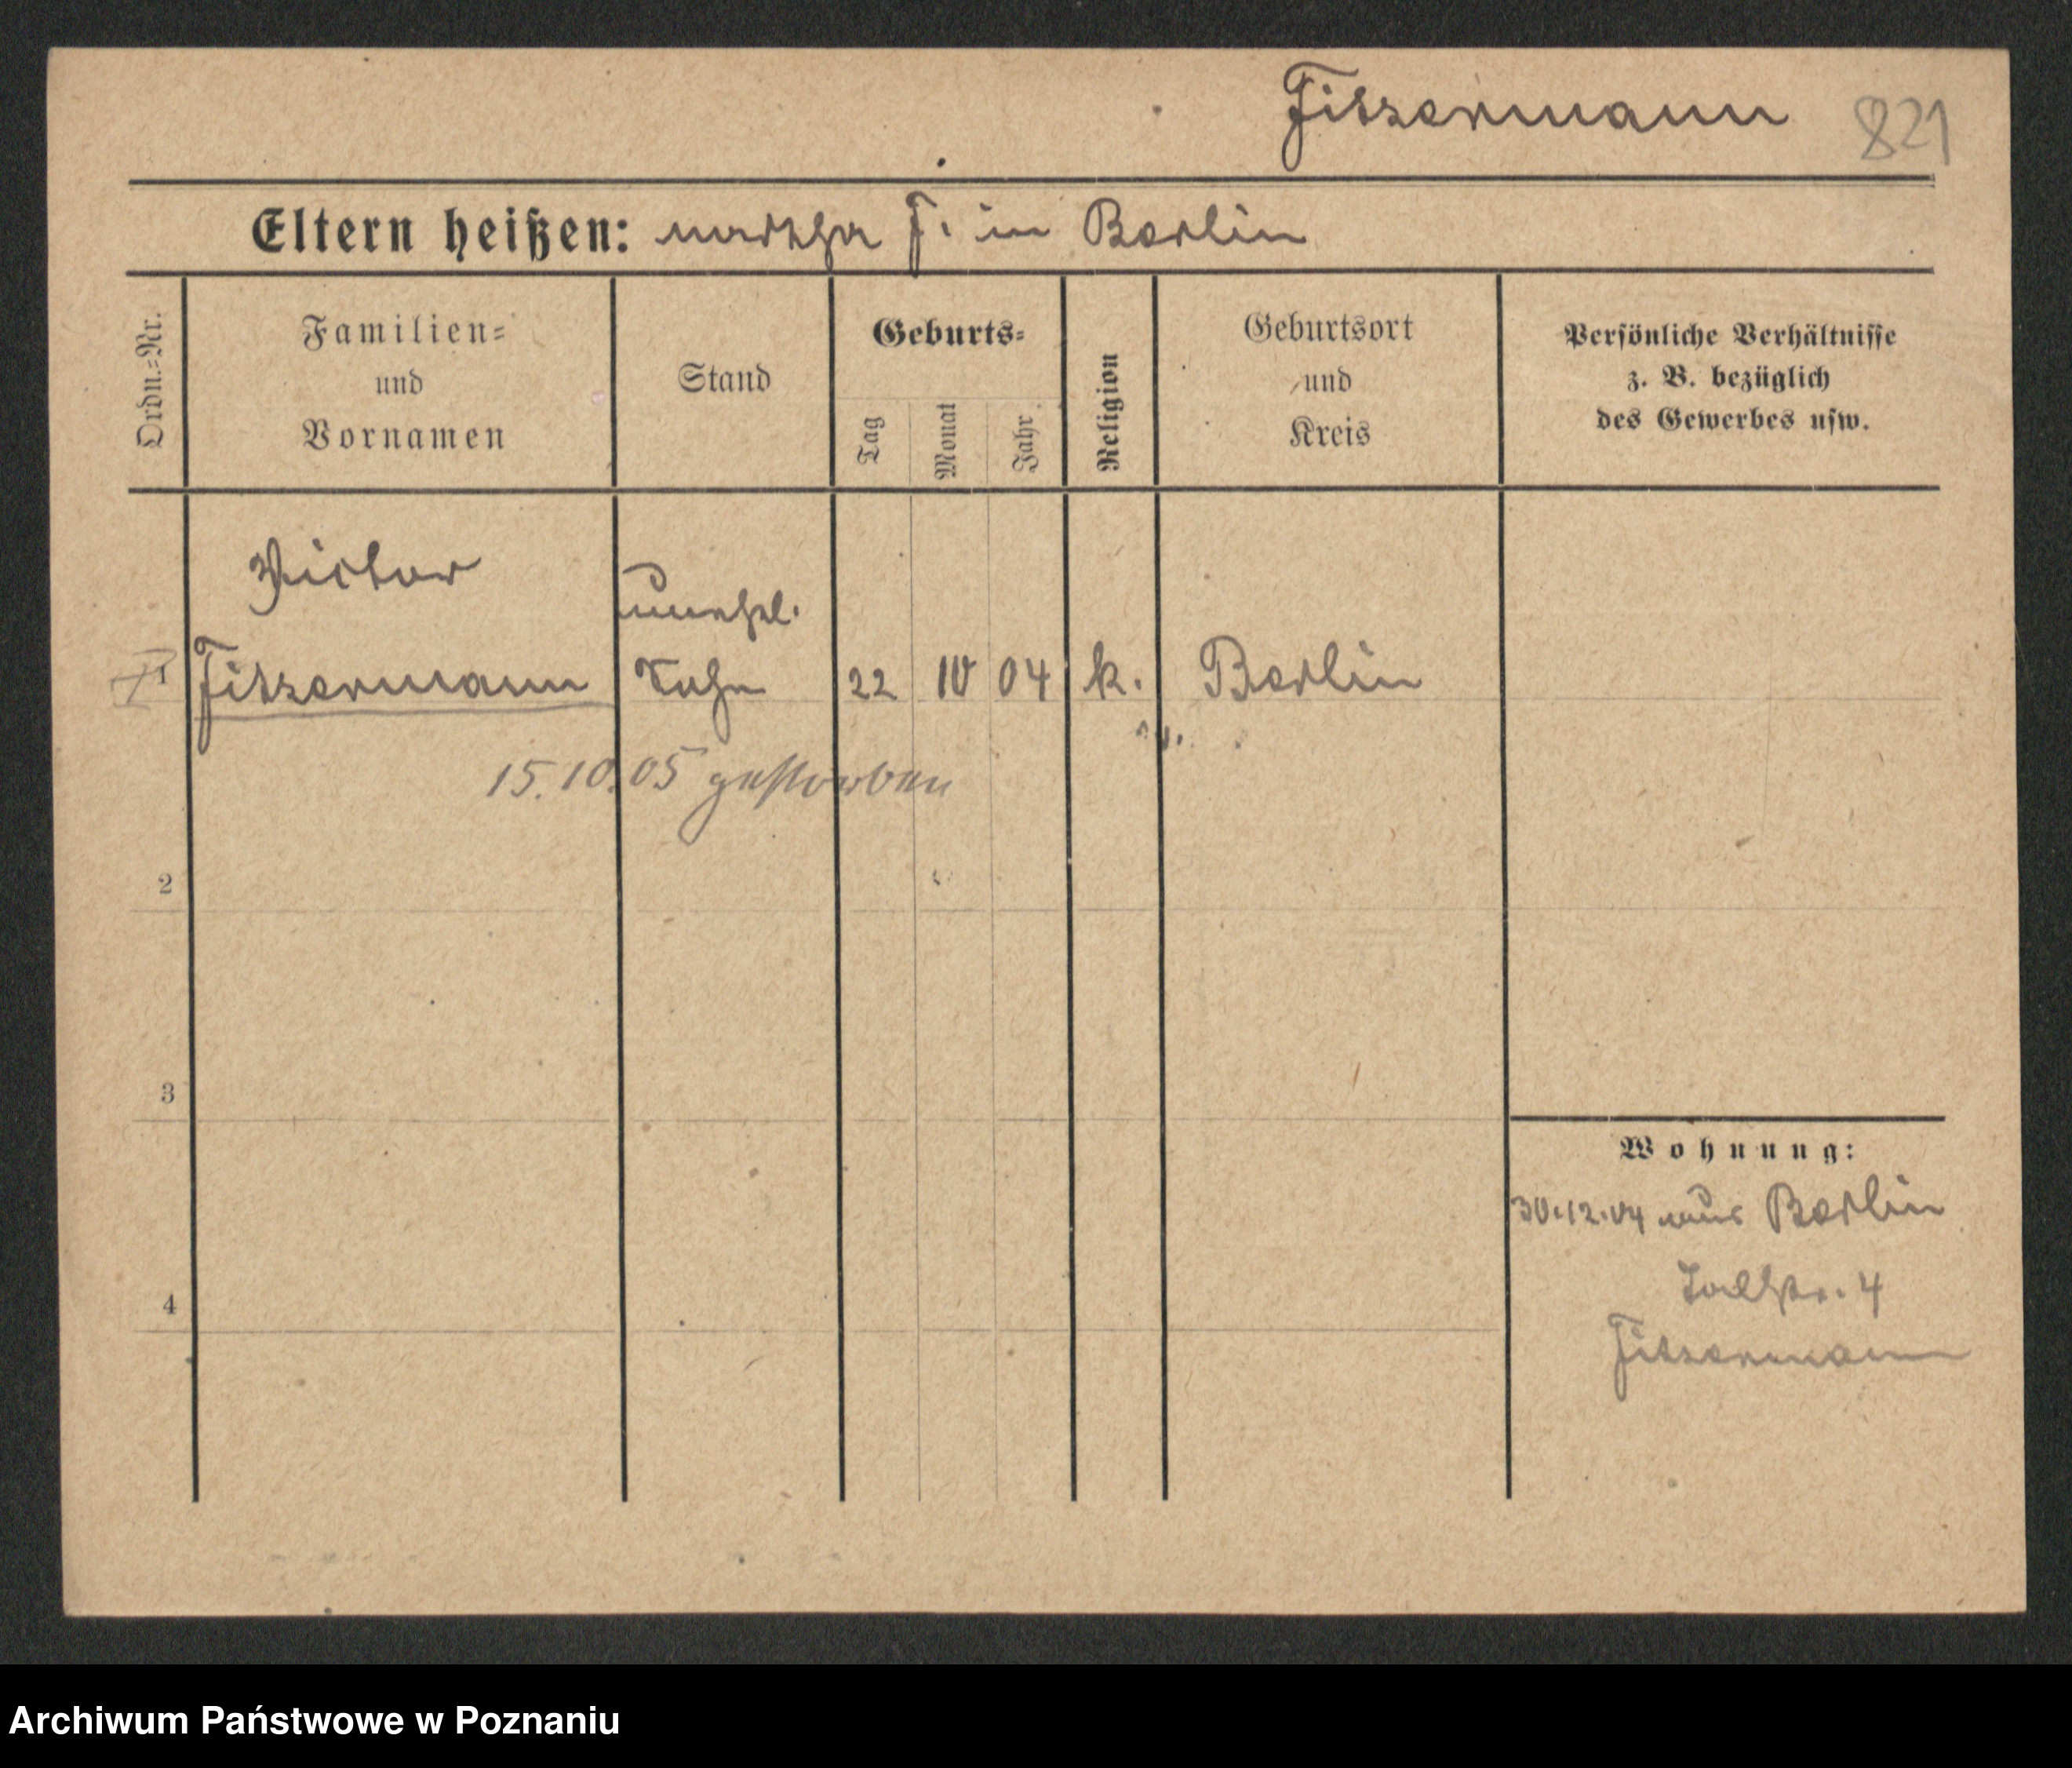 Fitzermann 821
Eltern heißen: martha F. in Berlin
Ordn.=Nr.
Familien=
und
Vornamen
Stand
Geburts=
Tag
Monat
Jahr
Religion
Geburtsort
und
Kreis
Persönliche Verhältnisse
z. B. bezüglich
des Gewerbes usw.
Victor
unehel.
1 Fitzermann Sohn 22 10 04 k. Berlin
15.10.05 gestorben
2
3
4
Wohnung:
30.12.04 aus Berlin
4
Fitzermann
Archiwum Państwowe w Poznaniu